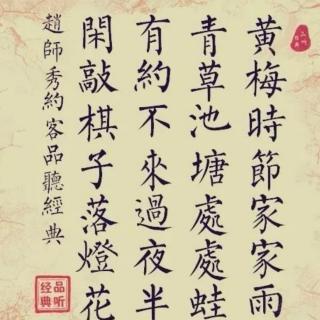 黃梅時節家家雨
青草池塘處處蛙
有約不來過夜半
閑敲棋子落燈花
趙師秀約客品聽經典
品听经典